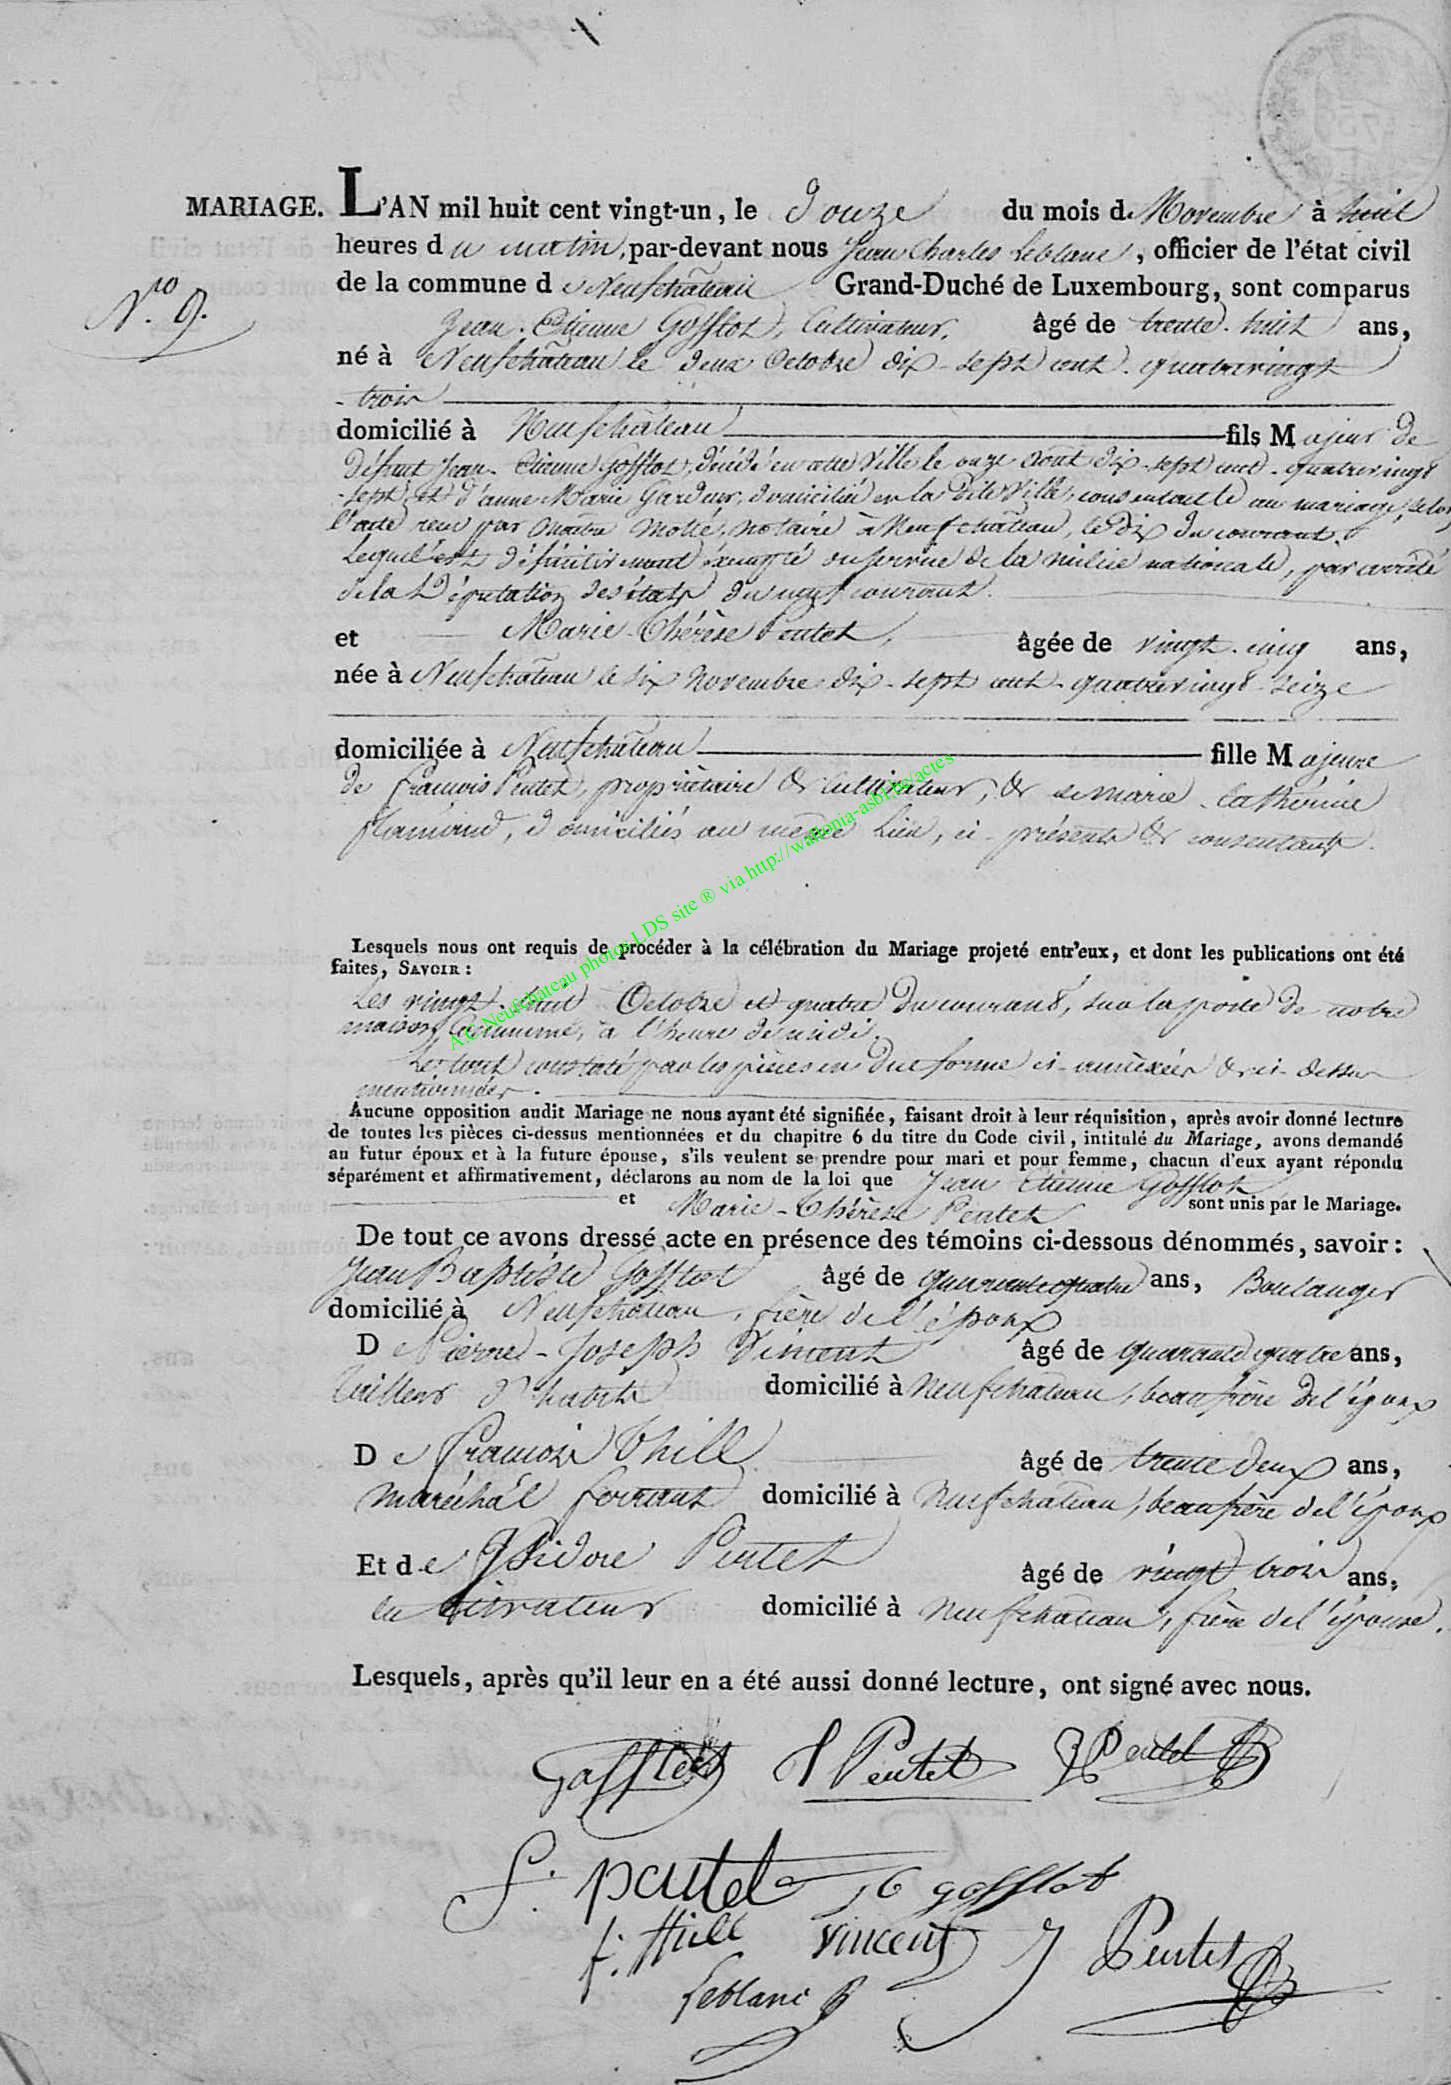 MARIAGE. L'AN mil huit cent vingt-un, le Douze du mois de Novembre à huit
heures du matin, par-devant nous Jean Charles Leblanc, officier de l'état civil
de la commune de Neufchateau Grand-Duché de Luxembourg, sont comparus
N.ro 9.
Jean-Etienne Gofflot, Cultivateur, âgé de trente-huit ans,
né à Neufchâteau le deux Octobre dix-sept cent-quatrevingt
-trois
domicilié à Neufchâteau fils Majeur de
défunt Jean-Etienne Gofflot, décédé en cette Ville le onze Aout dix-sept cent-quatrevingt
-sept, et d'anne Marie Gardeur, domiciliée en la dite Ville, consentante au mariage, selon
l'acte reçu par Maitre Motté, notaire à Neufchâteau, le dix du courant.
Lequel est définitivement exempté du service de la milice nationale, par arrêté
de la Députation des états du neuf courant.
et Marie-Thérèse Pentet, âgée de vingt-cinq ans,
née à Neufchâteau le six Novembre dix-sept cent-quatrevingt-seize
domiciliée à Neufchâteau fille Majeure
de François Pentet, propriétaire & cultivateur, & de Marie-Catherine
flamand, domiciliés au même Lieu, ci-présents & consentants.
A.C. Neufchateau photos LDS site ® via http://wallonia-asbl.be/actes
Lesquels nous ont requis de procéder à la célébration du Mariage projeté entr'eux, et dont les publications ont été
faites, SAVOIR :
Les vingt-huit Octobre et quatre du courant, sur la porte de notre
maison Commune, à l'heure de midi.
Le tout constaté par les pièces en due forme ci-annexées & ci-dessus
mentionnées.
Aucune opposition audit Mariage ne nous ayant été signifiée, faisant droit à leur réquisition, après avoir donné lecture
de toutes les pièces ci-dessus mentionnées et du chapitre 6 du titre du Code civil, intitulé du Mariage, avons demandé
au futur époux et à la future épouse, s'ils veulent se prendre pour mari et pour femme, chacun d'eux ayant répondu
séparément et affirmativement, déclarons au nom de la loi que Jean Etienne Gofflot
et Marie-Thérèse Pentet sont unis par le Mariage.
De tout ce avons dressé acte en présence des témoins ci-dessous dénommés, savoir :
Jean Baptiste Gofflot âgé de quarante quatre ans, Boulanger
domicilié à Neufchateau, frère de l'époux
De Pierre-Joseph Vincent âgé de quarante quatre ans,
Tailleur d'habits domicilié à Neufchateau, beaufrère de l'époux
De François Thill âgé de trente deux ans,
Maréchal ferrant domicilié à Neufchateau, beaufrère de l'époux
Et de Isidore Pentet âgé de vingt trois ans,
cultivateur domicilié à Neufchateau, frère de l'épouse.
Lesquels, après qu'il leur en a été aussi donné lecture, ont signé avec nous.
Gofflot Pentet Pentet
f. pentet gofflot
f. thill vincent J Pentet
Leblanc